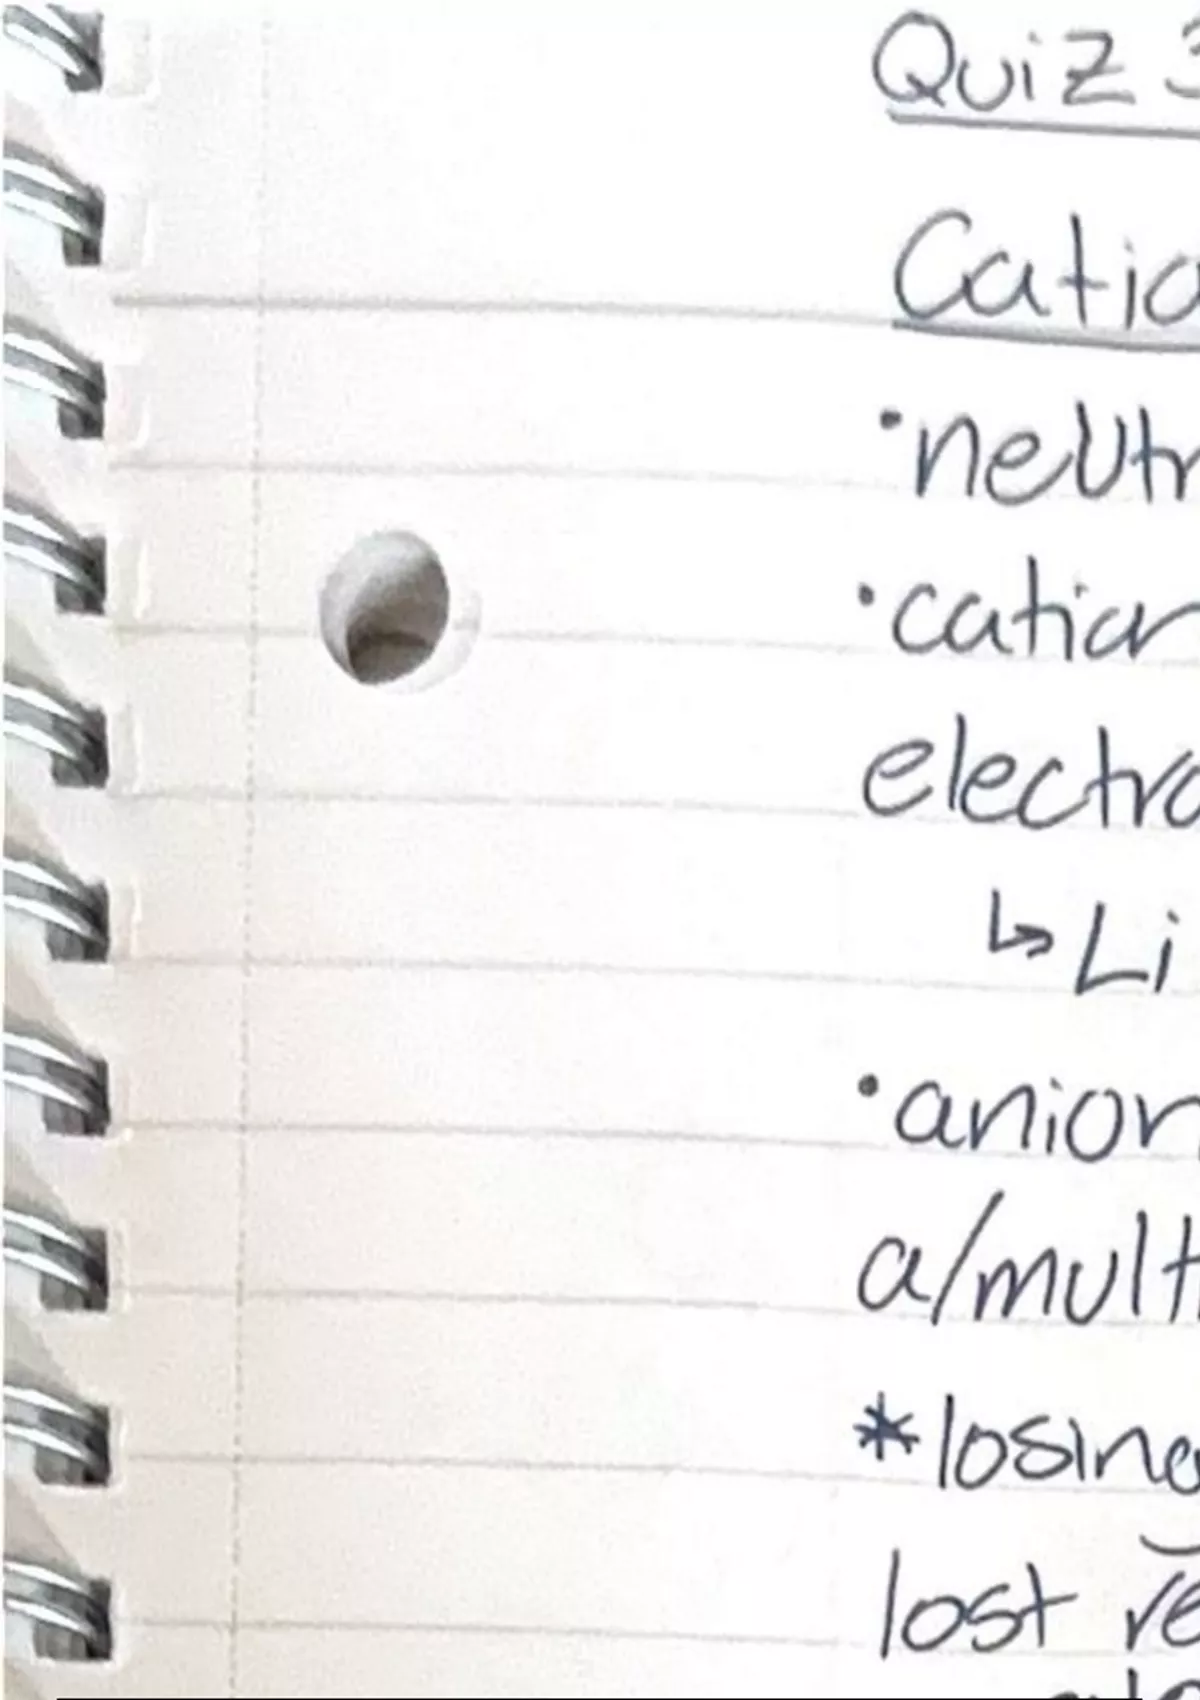 Quiz 3
Catio
•neutr
•cation
electro
↳ Li
•anion
a/mult
*losing
lost re